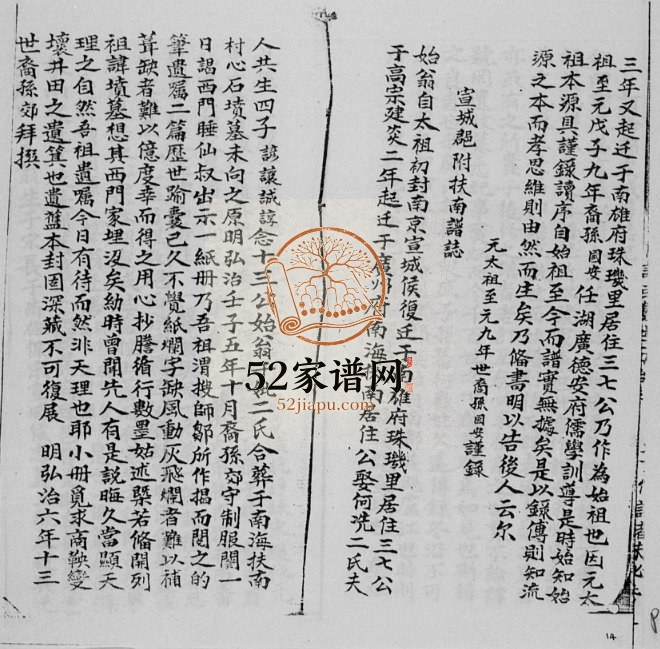 三年又起迁于南雄府珠璣里居住三七公乃作為始祖也因元太
祖至元戊子九年裔孫國安任湖廣德安府儒學訓導是時始知始
祖本源具謹錄讀序自始祖至今而譜實無據矣是以錄傳則知流
源之本而孝思維則由然而生矣乃脩書明以告後人云尔
元太祖至元九年世裔孫國安謹錄
宣城邑附扶南譜誌
始翁自太祖初封南京宣城侯復迁于南雄府珠璣里居住三七公
于高宗建炎二年起迁于廣州府南海扶南居住公娶何冼二氏夫
人共生四子諺讓誠諄念十三公始翁何冼二氏合葬于南海扶南
村心石墳墓未向之原明弘治壬子五年十月裔孫郊守制服闋一
日謁西門睡仙叔出示一紙册乃吾祖渭搜師鄒所作揭而閱之的
筆遺屬二篇歷世踰囊已久不覺紙爛字缺風動灰飛爛者難以補
葺缺者難以億度幸而得之用心抄謄循行數墨姑述槩若脩開列
祖諱墳墓想其西門家埋沒矣幼時曾聞先人有是説晦久當顯天
理之自然吾祖遺嘱今日有待而然非天理也耶小册覓求商鞅變
壞井田之遺箕也遺盬本封固深藏不可復展 明弘治六年十三
世裔孫郊拜撰
52家谱网
52jiapu.com
14